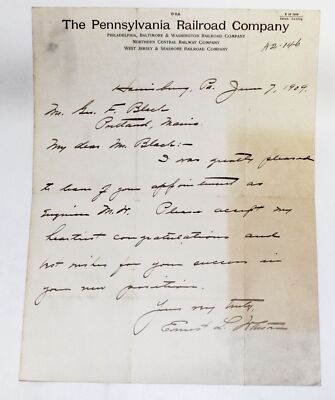 The Pennsylvania Railroad Company
Philadelphia, Baltimore & Washington Railroad Company
Northern Central Railway Company
West Jersey & Seashore Railroad Company
A2-146
Harrisburg, Pa. June 7, 1909.
Mr. Geo. F. Black
Portland, Maine.
My dear Mr. Black:-
I was greatly pleased
to learn of your appointment as
Engineer M.W. Please accept my
heartiest congratulations and
best wishes for your success in
your new position.
Yours very truly,
Ernest L.